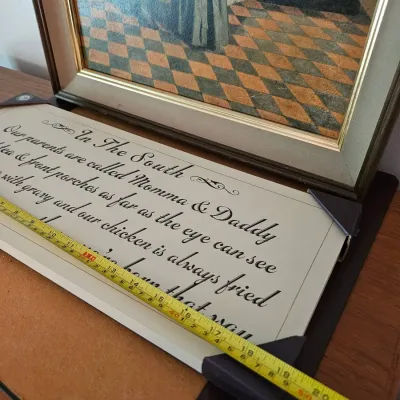 In The South
Our parents are called Momma & Daddy
tea & front porches as far as the eye can see
with gravy and our chicken is always fried
born that way